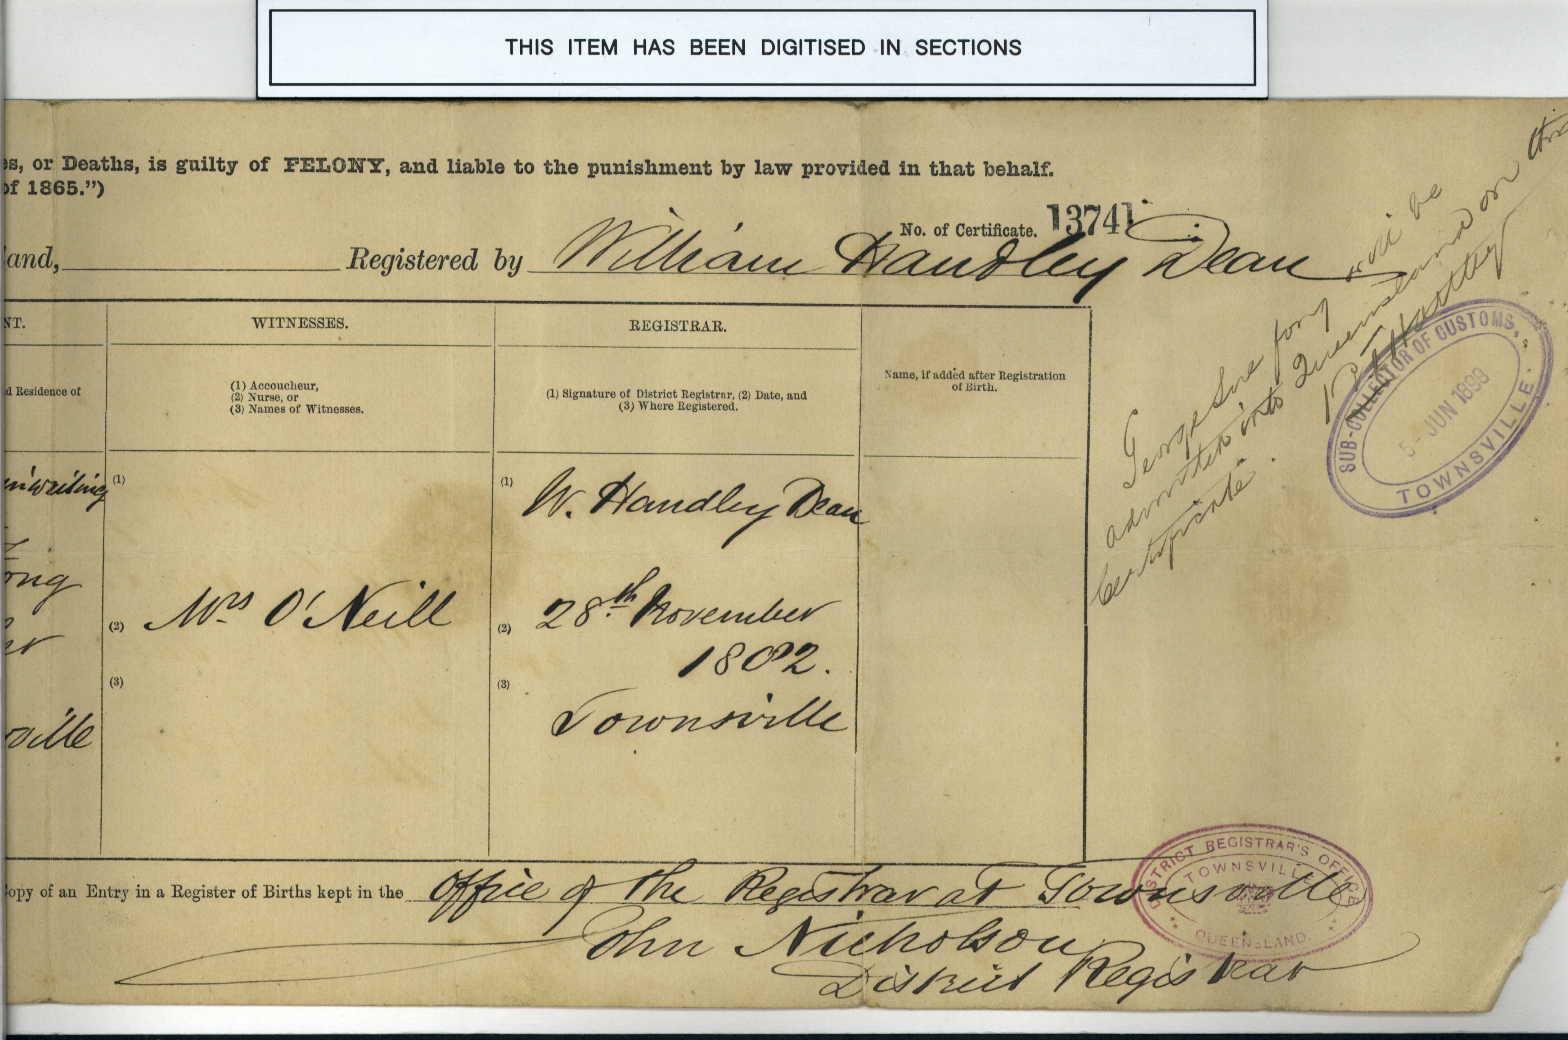 THIS ITEM HAS BEEN DIGITISED IN SECTIONS
es, or Deaths, is guilty of FELONY, and liable to the punishment by law provided in that behalf.
of 1865.")
No. of Certificate. 13741
land, Registered by William Handley Dean
NT.
WITNESSES.
REGISTRAR.
d Residence of
(1) Accoucheur,
(2) Nurse, or
(3) Names of Witnesses.
(1) Signature of District Registrar, (2) Date, and
(3) Where Registered.
Name, if added after Registration
of Birth.
in writing
(1)
(1) W. Handley Dean
ong
(2) Mrs O'Neill
(2) 28th November
1882.
(3)
(3) Townsville
ville
George Sue Fong will be
admitted into Queensland on this
Certificate.
SUB-COLLECTOR OF CUSTOMS,
5-JUN 1899
TOWNSVILLE.
Copy of an Entry in a Register of Births kept in the Office of the Registrar at Townsville
John Nicholson
District Registrar
DISTRICT REGISTRAR'S OFFICE
TOWNSVILLE
QUEENSLAND.